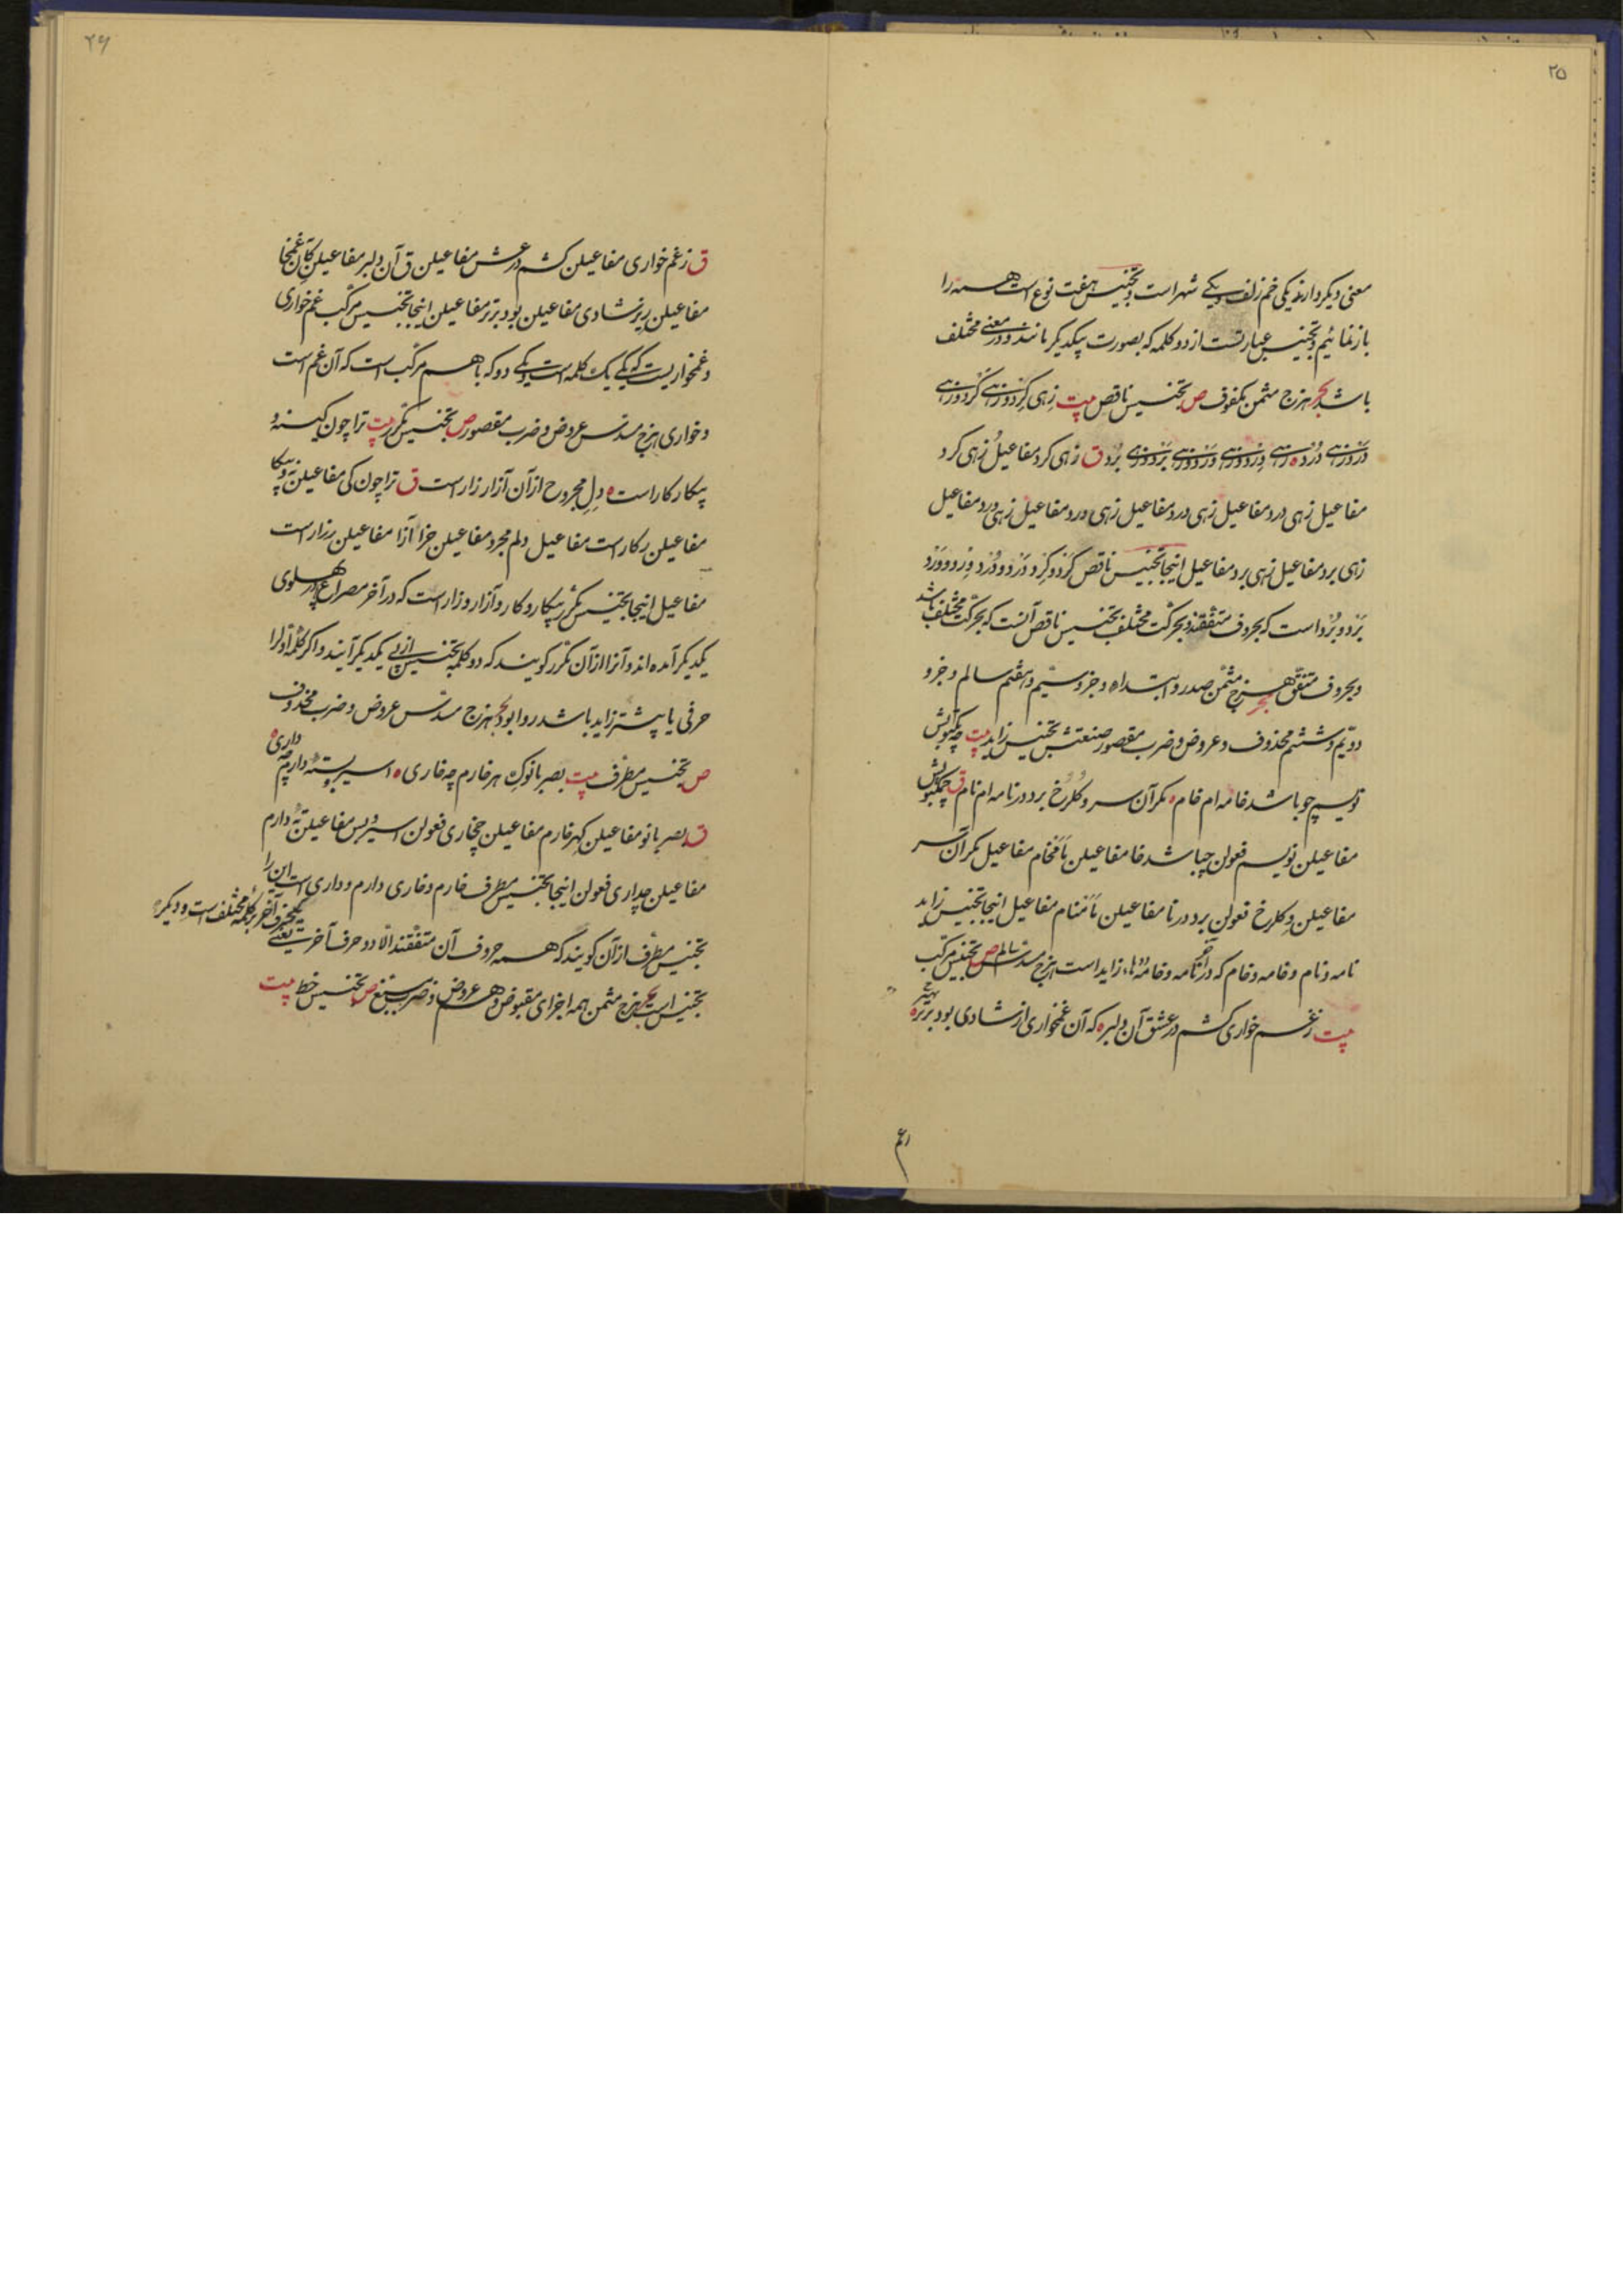 ۲۵
معنی دیکر دارند یکی خم زلف و یکے شهر است و تجنیس هفت نوع است همه را
باز نمائیم و تجنیس عبارتست از دو کلمه که بصورت بیکدیکر مانند و در معنے مختلف
باشد بحر هزج مثمن مکفوف ص تجنیس ناقص بیت زهی کرد و زهے کرد و زهے
درد زهے درد ه زهے ورد و زهے ورد و زهے برد و زهے برد ق زهی کرد مفاعیل زهی کرد
مفاعیل زهی درد مفاعیل زهی درد مفاعیل زهی ورد مفاعیل زهی ورد مفاعیل
زهی برد مفاعیل زهی برد مفاعیل اینجا تجنیس ناقص کرد و کرد و درد و درد و ورد و ورد و
برد و برد است که بحروف متفقند و بحرکت مختلف تجنیس ناقص آنست که بحرکت مختلف باشد
و بحروف متفق بحر هزج مثمن صدر و ابتداء و جزو سیم و هفتم سالم و جزو
دویم و ششم محذوف و عروض و ضرب مقصور صنعتش تجنیس زاید بیت چه بکوبش
نویسم چو باشد خامه ام خام ه مکر آن سرو کلرخ برد در نامه ام نام ق
مفاعیلن نویسم فعولن چباشد خا مفاعیلن مکر آن سر
مفاعیلن و کلرخ فعولن برد در نا مفاعیلن مفاعیل اینجا تجنیس زاید
نامه و نام و خامه و خام که در آخر نامه و خامه ها زاید است هزج مسدس سالم ص تجنیس مرکب
بیت زغم خواری کشم در عشق آن دلبر ه که آن غمخواری از شادی بود برتر ه
۲۶
ق زغم خواری مفاعیلن کشم در عش مفاعیلن ق آن دلبر مفاعیلن کآن غمخا
مفاعیلن ریز شادی مفاعیلن بود برتر مفاعیلن اینجا تجنیس مرکب غم خواری
و غمخواریست که یکے یک کلمه است و یکے دو که با هم مرکب است که آن غم است
و خواری هزج مسدس عروض و ضرب مقصور ص تجنیس مکرر بیت ترا چون کینه و
پیکار کار است ه دل مجروح از آن آزار زار است ق ترا چون کی مفاعیلن
مفاعیلن رکار است مفاعیل دلم مجرو مفاعیلن آزا مفاعیلن رزار است
مفاعیل اینجا تجنیس مکرر پیکار و کار و آزار و زار است که در آخر مصراع پهلوی
یکدیکر آمده اند و آنرا از آن مکرر کویند که دو کلمه تجنیس از پی یکدیکر آیند و اکر کلمه اول را
حرفی یا بیشتر زاید باشد روا بود بحر هزج مسدس عروض و ضرب محذوف
ص تجنیس مطرف بیت بصبر با نوک هر خارم چه خاری ه دارم چه داری ه
ق مفاعیلن کهر خارم مفاعیلن چخاری فعولن دارم
مفاعیلن چداری فعولن اینجا تجنیس مطرف خارم و خاری دارم و داری است این را
تجنیس مطرف از آن کویند که همه حروف آن متفقند الا دو حرف آخر یعنے یکحرف آخر هر کلمه مختلف است و دیکر
تجنیس است بحر هزج مثمن همه اجزای مقبوض و هم عروض و ضرب مسبغ ص تجنیس خط بیت